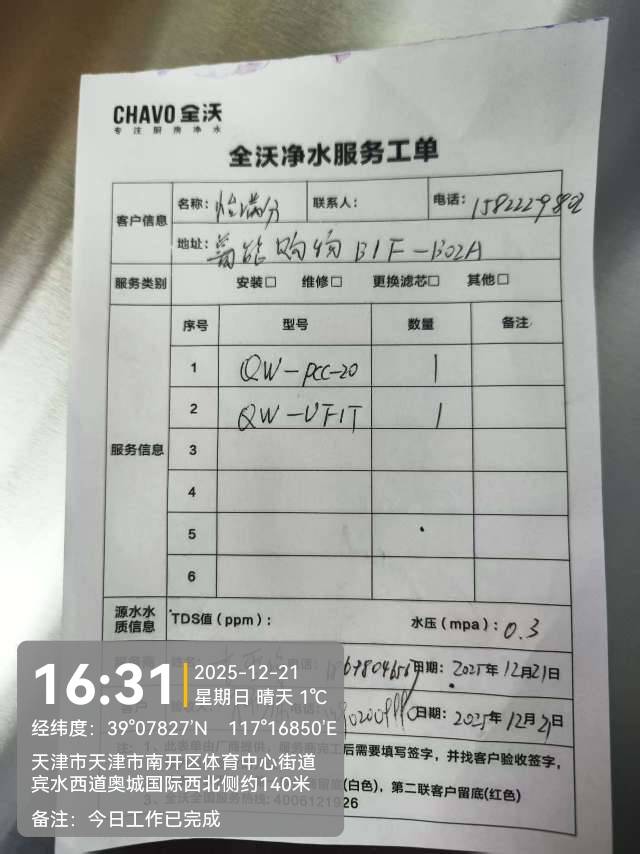 CHAVO 全沃
专注厨房净水
全沃净水服务工单
客户信息
名称: 怡满分 联系人: 电话:
地址: 购物 B1F-B02A
服务类别 安装□ 维修□ 更换滤芯□ 其他□
服务信息
序号 型号 数量 备注
1 QW-PCC-20 1
2 QW-UF1T 1
3
4
5
6
源水水质信息 TDS值（ppm）: 水压（mpa）: 0.3
日期: 2025年12月21日
客户 日期: 2025年12月21日
注: 1、此表单由厂商提供，服务商完工后需要填写签字，并找客户验收签字，
(白色)，第二联客户留底(红色)
3、全沃全国服务热线: 4006121926
16:31
2025-12-21
星期日 晴天 1℃
经纬度: 39°07827′N 117°16850′E
天津市天津市南开区体育中心街道
宾水西道奥城国际西北侧约140米
备注: 今日工作已完成